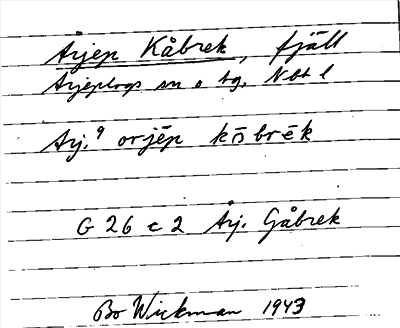 Årjep Kåbrek, fjäll
Arjeplogs sn o tg. Nbt l
Arj.9 orjēp kōbrēk
G 26 c 2 Årj. Gåbrek
Bo Wickman 1943